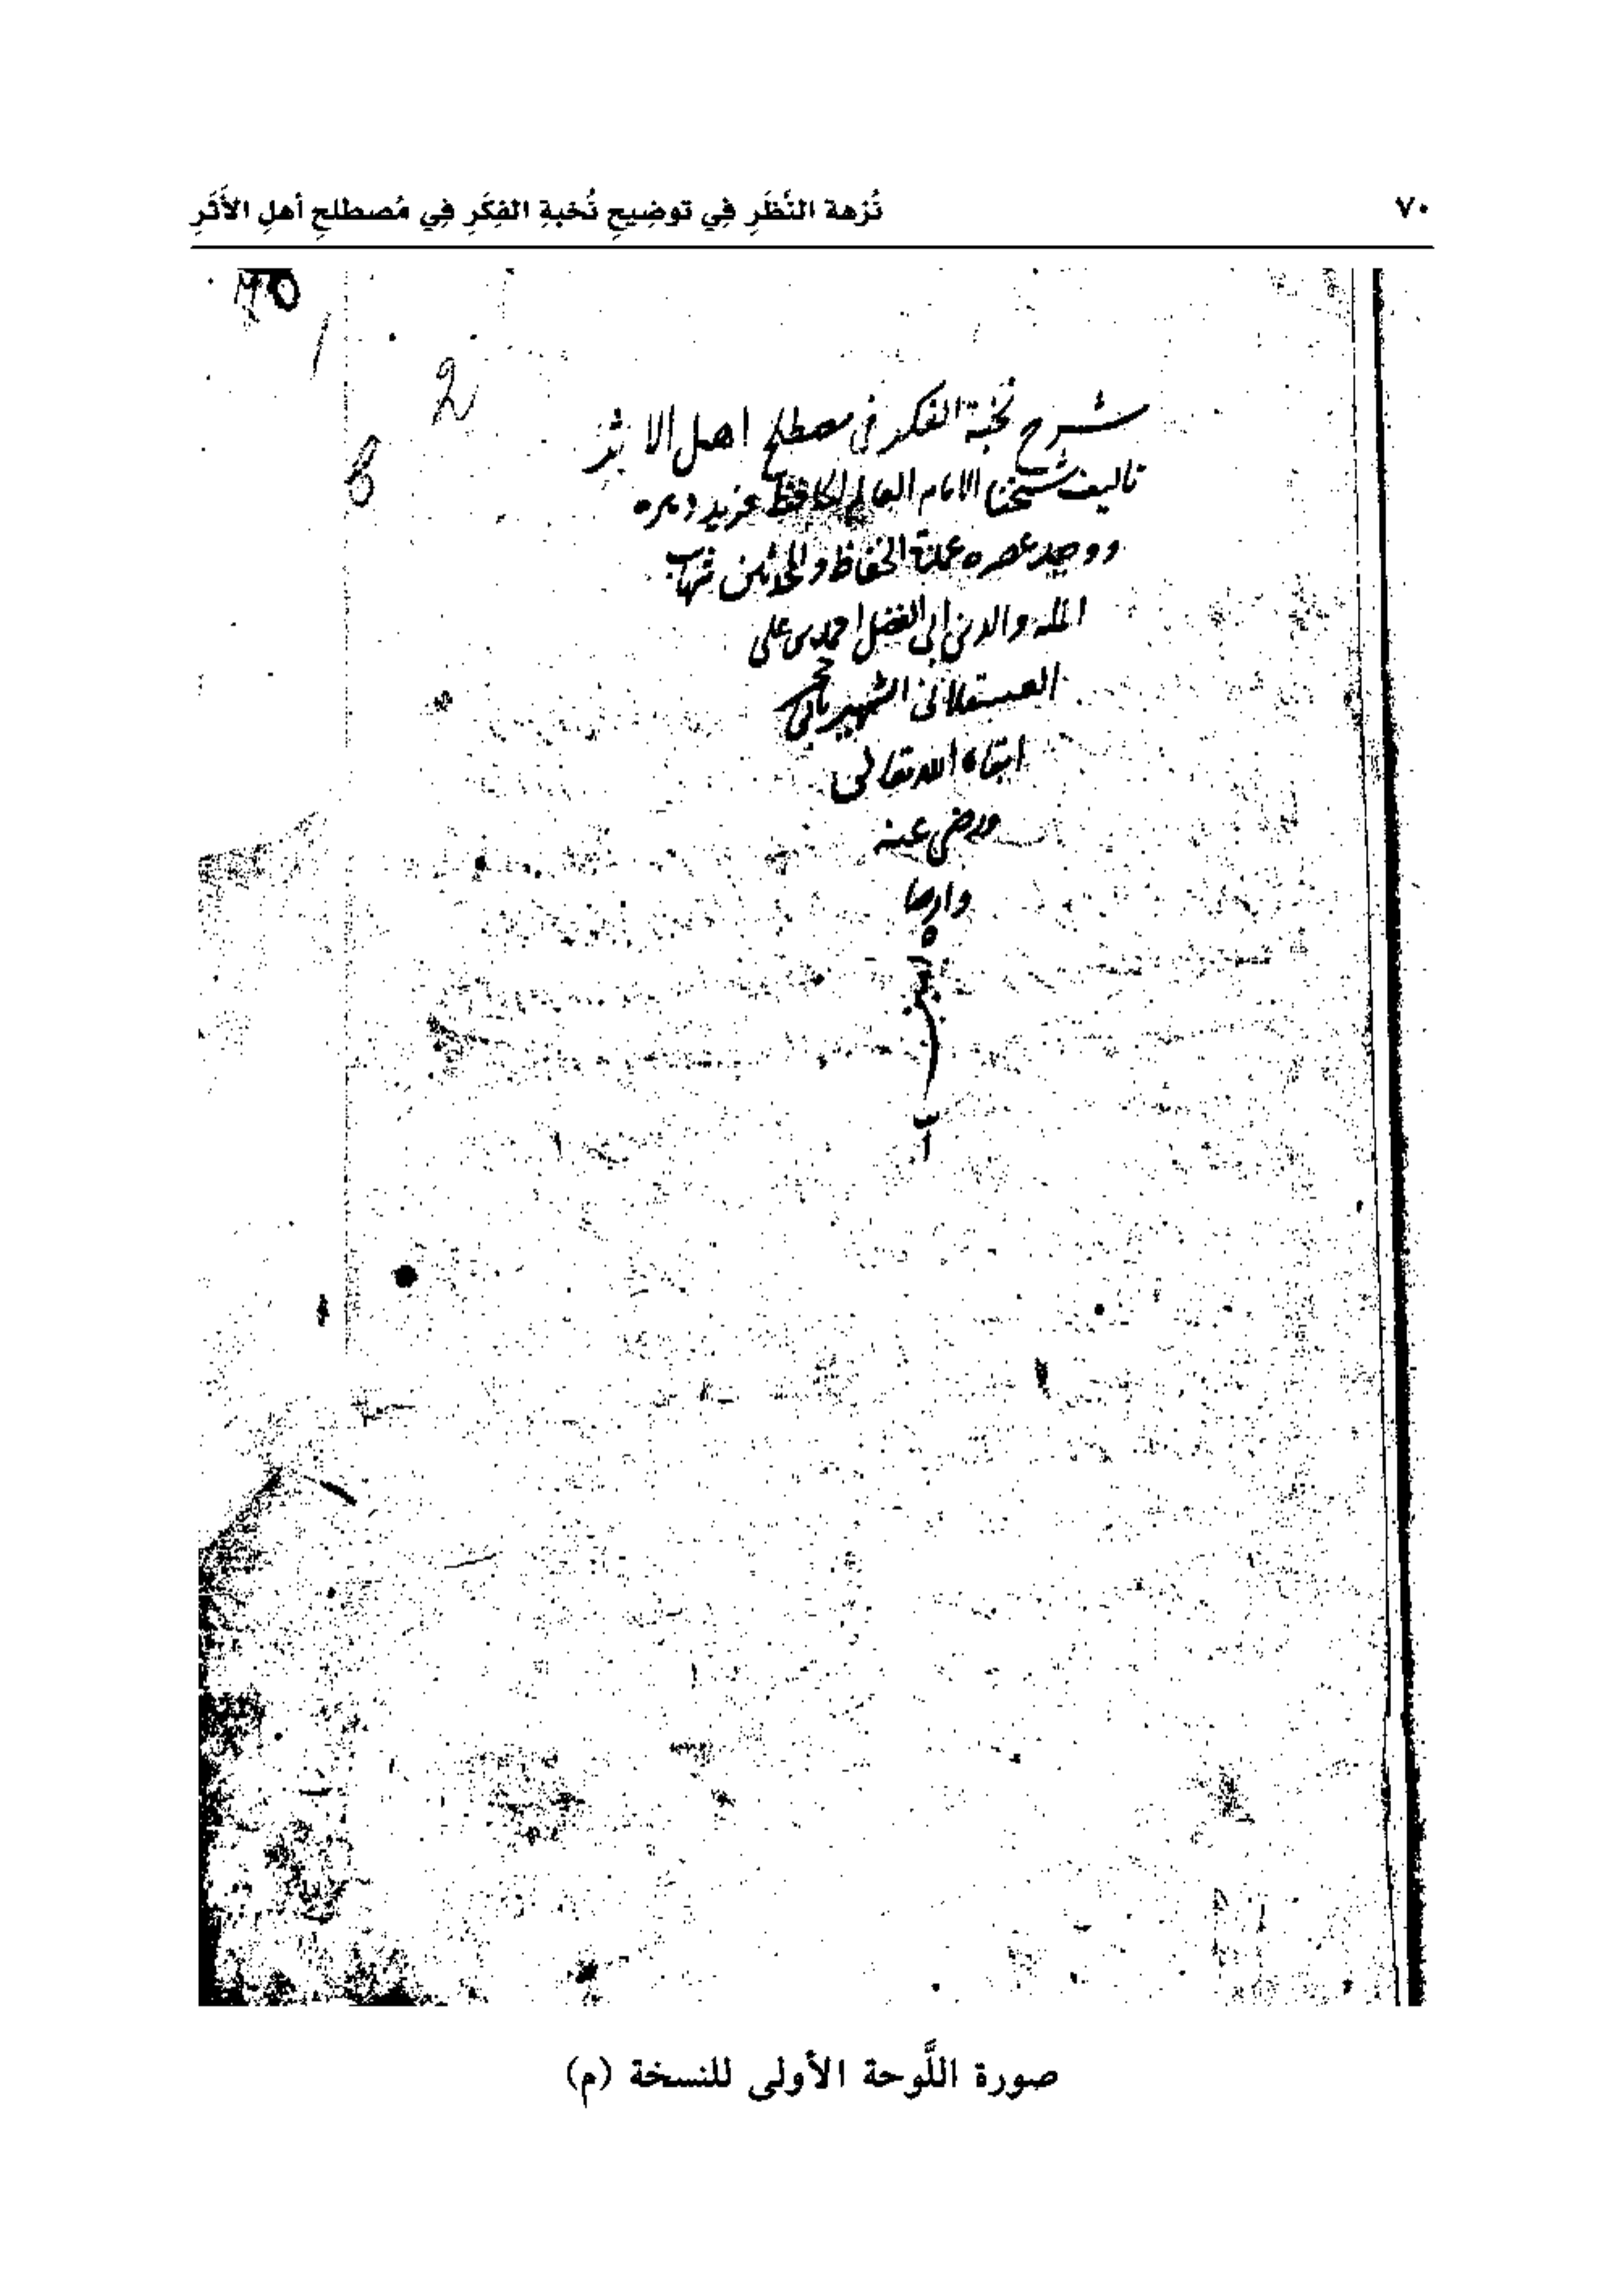 ٧٠
نُزهة النَّظَرِ فِي توضِيحِ نُخبةِ الفِكَرِ فِي مُصطلحِ أهلِ الأَثَرِ
2
شرح نخبة الفكر في مصطلح اهل الاثر
تاليف شيخنا الامام العالم الحافظ فريد دهره
ووحيد عصره عمدة الحفاظ والمحدثين شهاب
المله والدين ابي الفضل احمد بن علي
العسقلاني الشهير بابن حجر
ابقاه الله تعالى
ورضي عنه
وارضا
ه
صورة اللَّوحة الأولى للنسخة (م)